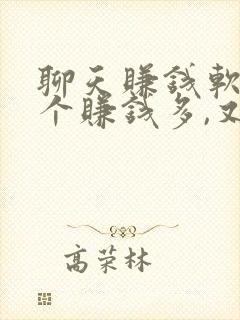 聊天賺錢軟
个賺錢多,又
高荣林